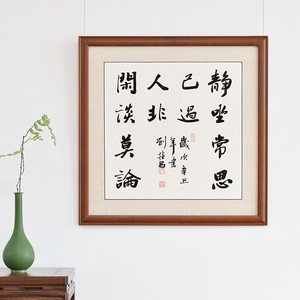 静坐常思
己過
閑談莫論
人非
歲次辛丑
年書